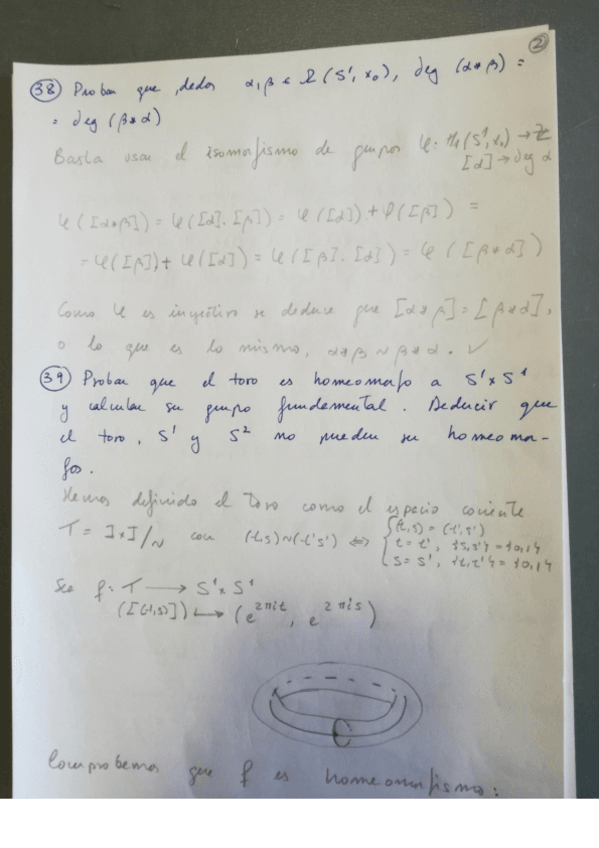 2
38 Probar que, dados α, β ∈ Ω(S¹, x₀), deg (α*β) =
= deg (β*α)
Basta usar el isomorfismo de grupos φ: π₁(S¹, x₀) → ℤ
[α] → deg α
φ([α*β]) = φ([α].[β]) = φ([α]) + φ([β]) =
= φ([β]) + φ([α]) = φ([β].[α]) = φ([β*α])
Como φ es inyectivo se deduce que [α*β] = [β*α],
o lo que es lo mismo, α*β ~ β*α. ✓
39 Probar que el toro es homeomorfo a S¹×S¹
y calcular su grupo fundamental. Deducir que
el toro, S¹ y S² no pueden ser homeomor-
fos.
Hemos definido el Toro como el espacio cociente
T = I×I/~ con (t,s)~(t',s') ⇔ { (t,s) = (t',s')
t = t', {s,s'} = {0,1}
s = s', {t,t'} = {0,1}
Sea f: T → S¹×S¹
([(t,s)]) ↦ (e^{2πit}, e^{2πis})
Comprobemos que f es homeomorfismo: